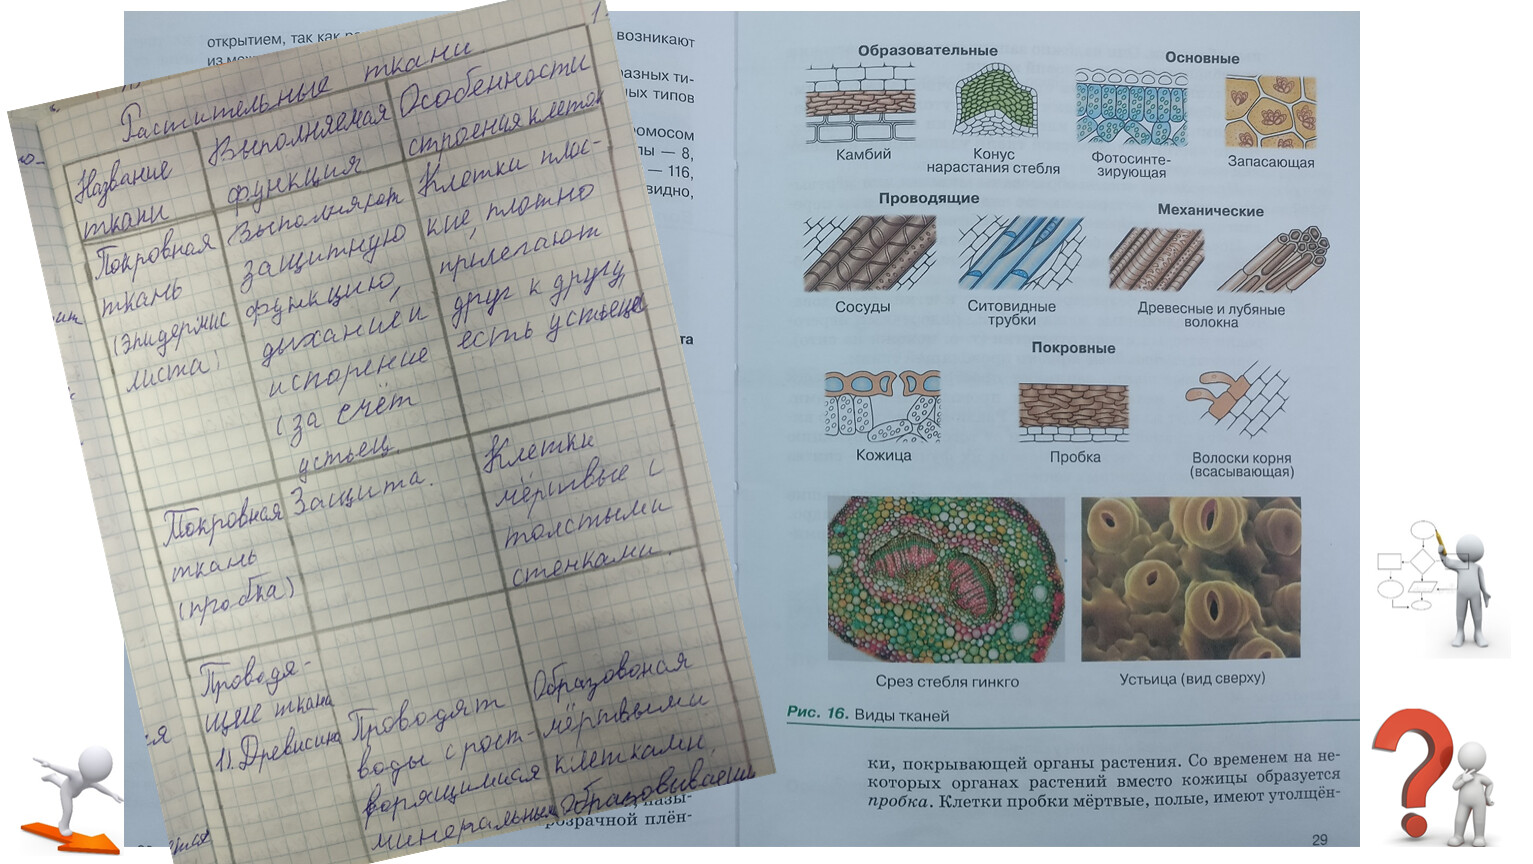 открытием, так как
возникают
разных ти-
ных типов
хромосом
— 8,
— 116,
видно,
1
Растительные ткани
Название
ткани
Выполняемая
функция
Особенности
строения клеток
Покровная
ткань
(эпидермис
листа)
Выполняют
защитную
функцию,
дыхание и
испорение
(за счёт
устьец.
Клетки плос-
кие, плотно
прилегают
друг к другу,
есть устьеца
Покровная
ткань
(пробка)
Защита.
Клетки
мёртвые с
толстыми
стенками.
Проводя-
щие ткана
1). Древисина
Проводят
воды с рост-
ворящимися
минеральным
Образовоная
мёртвыми
клетками,
образовываеш
розрачной плён-
Образовательные
Основные
Камбий
Конус
нарастания стебля
Фотосинте-
зирующая
Запасающая
Проводящие
Механические
Сосуды
Ситовидные
трубки
Древесные и лубяные
волокна
Покровные
Кожица
Пробка
Волоски корня
(всасывающая)
Срез стебля гинкго
Устьица (вид сверху)
Рис. 16. Виды тканей
ки, покрывающей органы растения. Со временем на не-
которых органах растений вместо кожицы образуется
пробка. Клетки пробки мёртвые, полые, имеют утолщён-
29